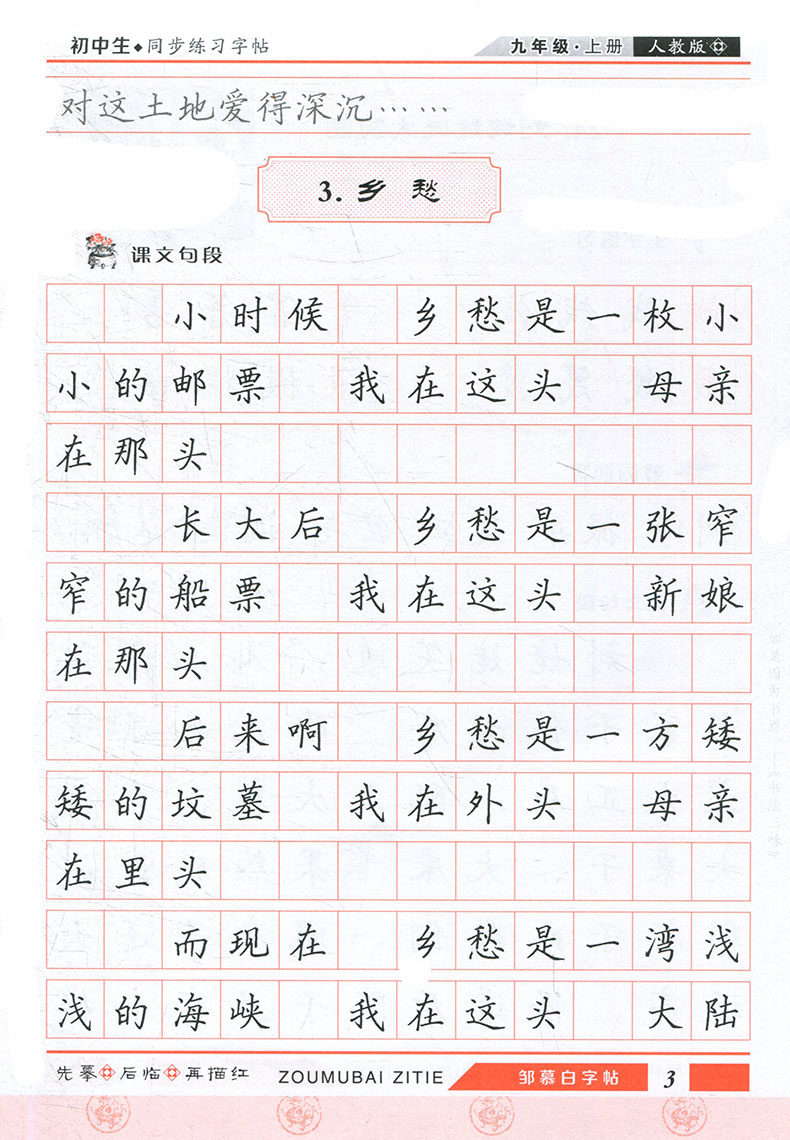 初中生◆同步练习字帖 九年级·上册 人教版
对这土地爱得深沉……
3.乡愁
课文句段
小时候 乡愁是一枚小
小的邮票 我在这头 母亲
在那头
长大后 乡愁是一张窄
窄的船票 我在这头 新娘
在那头
后来啊 乡愁是一方矮
矮的坟墓 我在外头 母亲
在里头
而现在 乡愁是一湾浅
浅的海峡 我在这头 大陆
先摹 后临 再描红 ZOUMUBAI ZITIE 邹慕白字帖 3